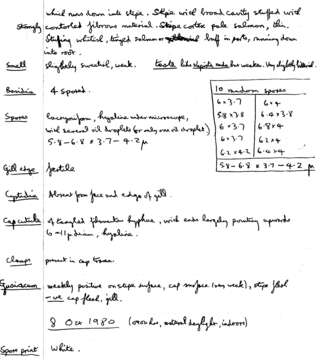 which runs down into stipe. Stipe with broad cavity stuffed with
strongly contorted fibrous material. Stipe cortex pale salmon, thin.
Stuffing whitish, tinged salmon or buff in parts, running down
into root.
Smell slightly sweetish, weak. Taste like but weaker. Very slightly bitter.
Basidia 4 spored.
Spores lacrymiform, hyaline under microscope,
with several oil droplets (or only one oil droplet)
5.8-6.8 × 3.7-4.2 µ
10 random spores
6 × 3.7 6 × 4
5.8 × 3.8 6.0 × 3.8
6 × 3.7 6.8 × 4
6 × 3.7 6.2 × 4
6.2 × 4.2 6.4 × 4
5.8-6.8 × 3.7-4.2 µ
Gill edge fertile
Cystidia Absent from face and edge of gill.
Cap cuticle of tangled filamentous hyphae, with ends largely pointing upwards
6-11 µ diam, hyaline.
Clamps present in cap tissue.
Guaiacum weakly positive on stipe surface, cap surface (very weak), stipe flesh
-ve cap flesh, gill.
8 Oct 1980 (1100 hrs, natural daylight, indoors)
Spore print White.